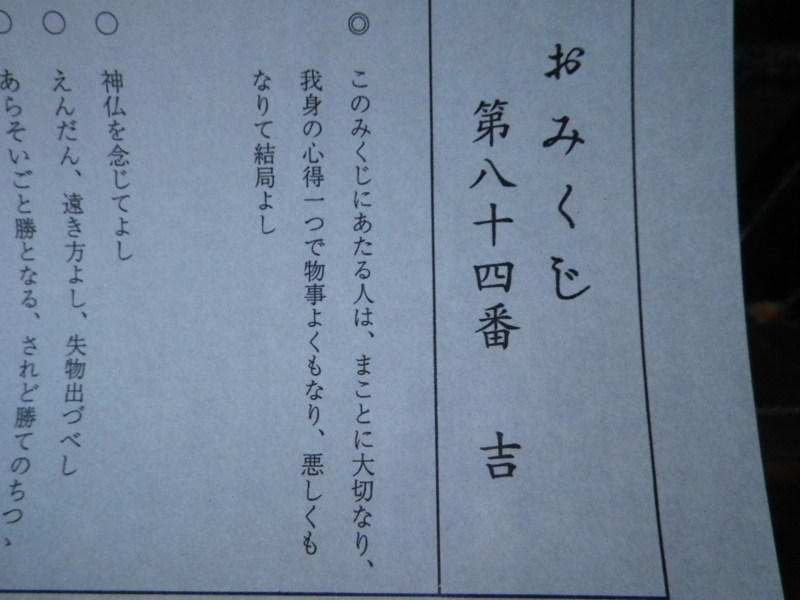 おみくじ
第八十四番　吉
◎このみくじにあたる人は、まことに大切なり、
我身の心得一つで物事よくもなり、悪しくも
なりて結局よし
○神仏を念じてよし
○えんだん、遠き方よし、失物出づべし
○あらそいごと勝となる、されど勝てのちつゝ